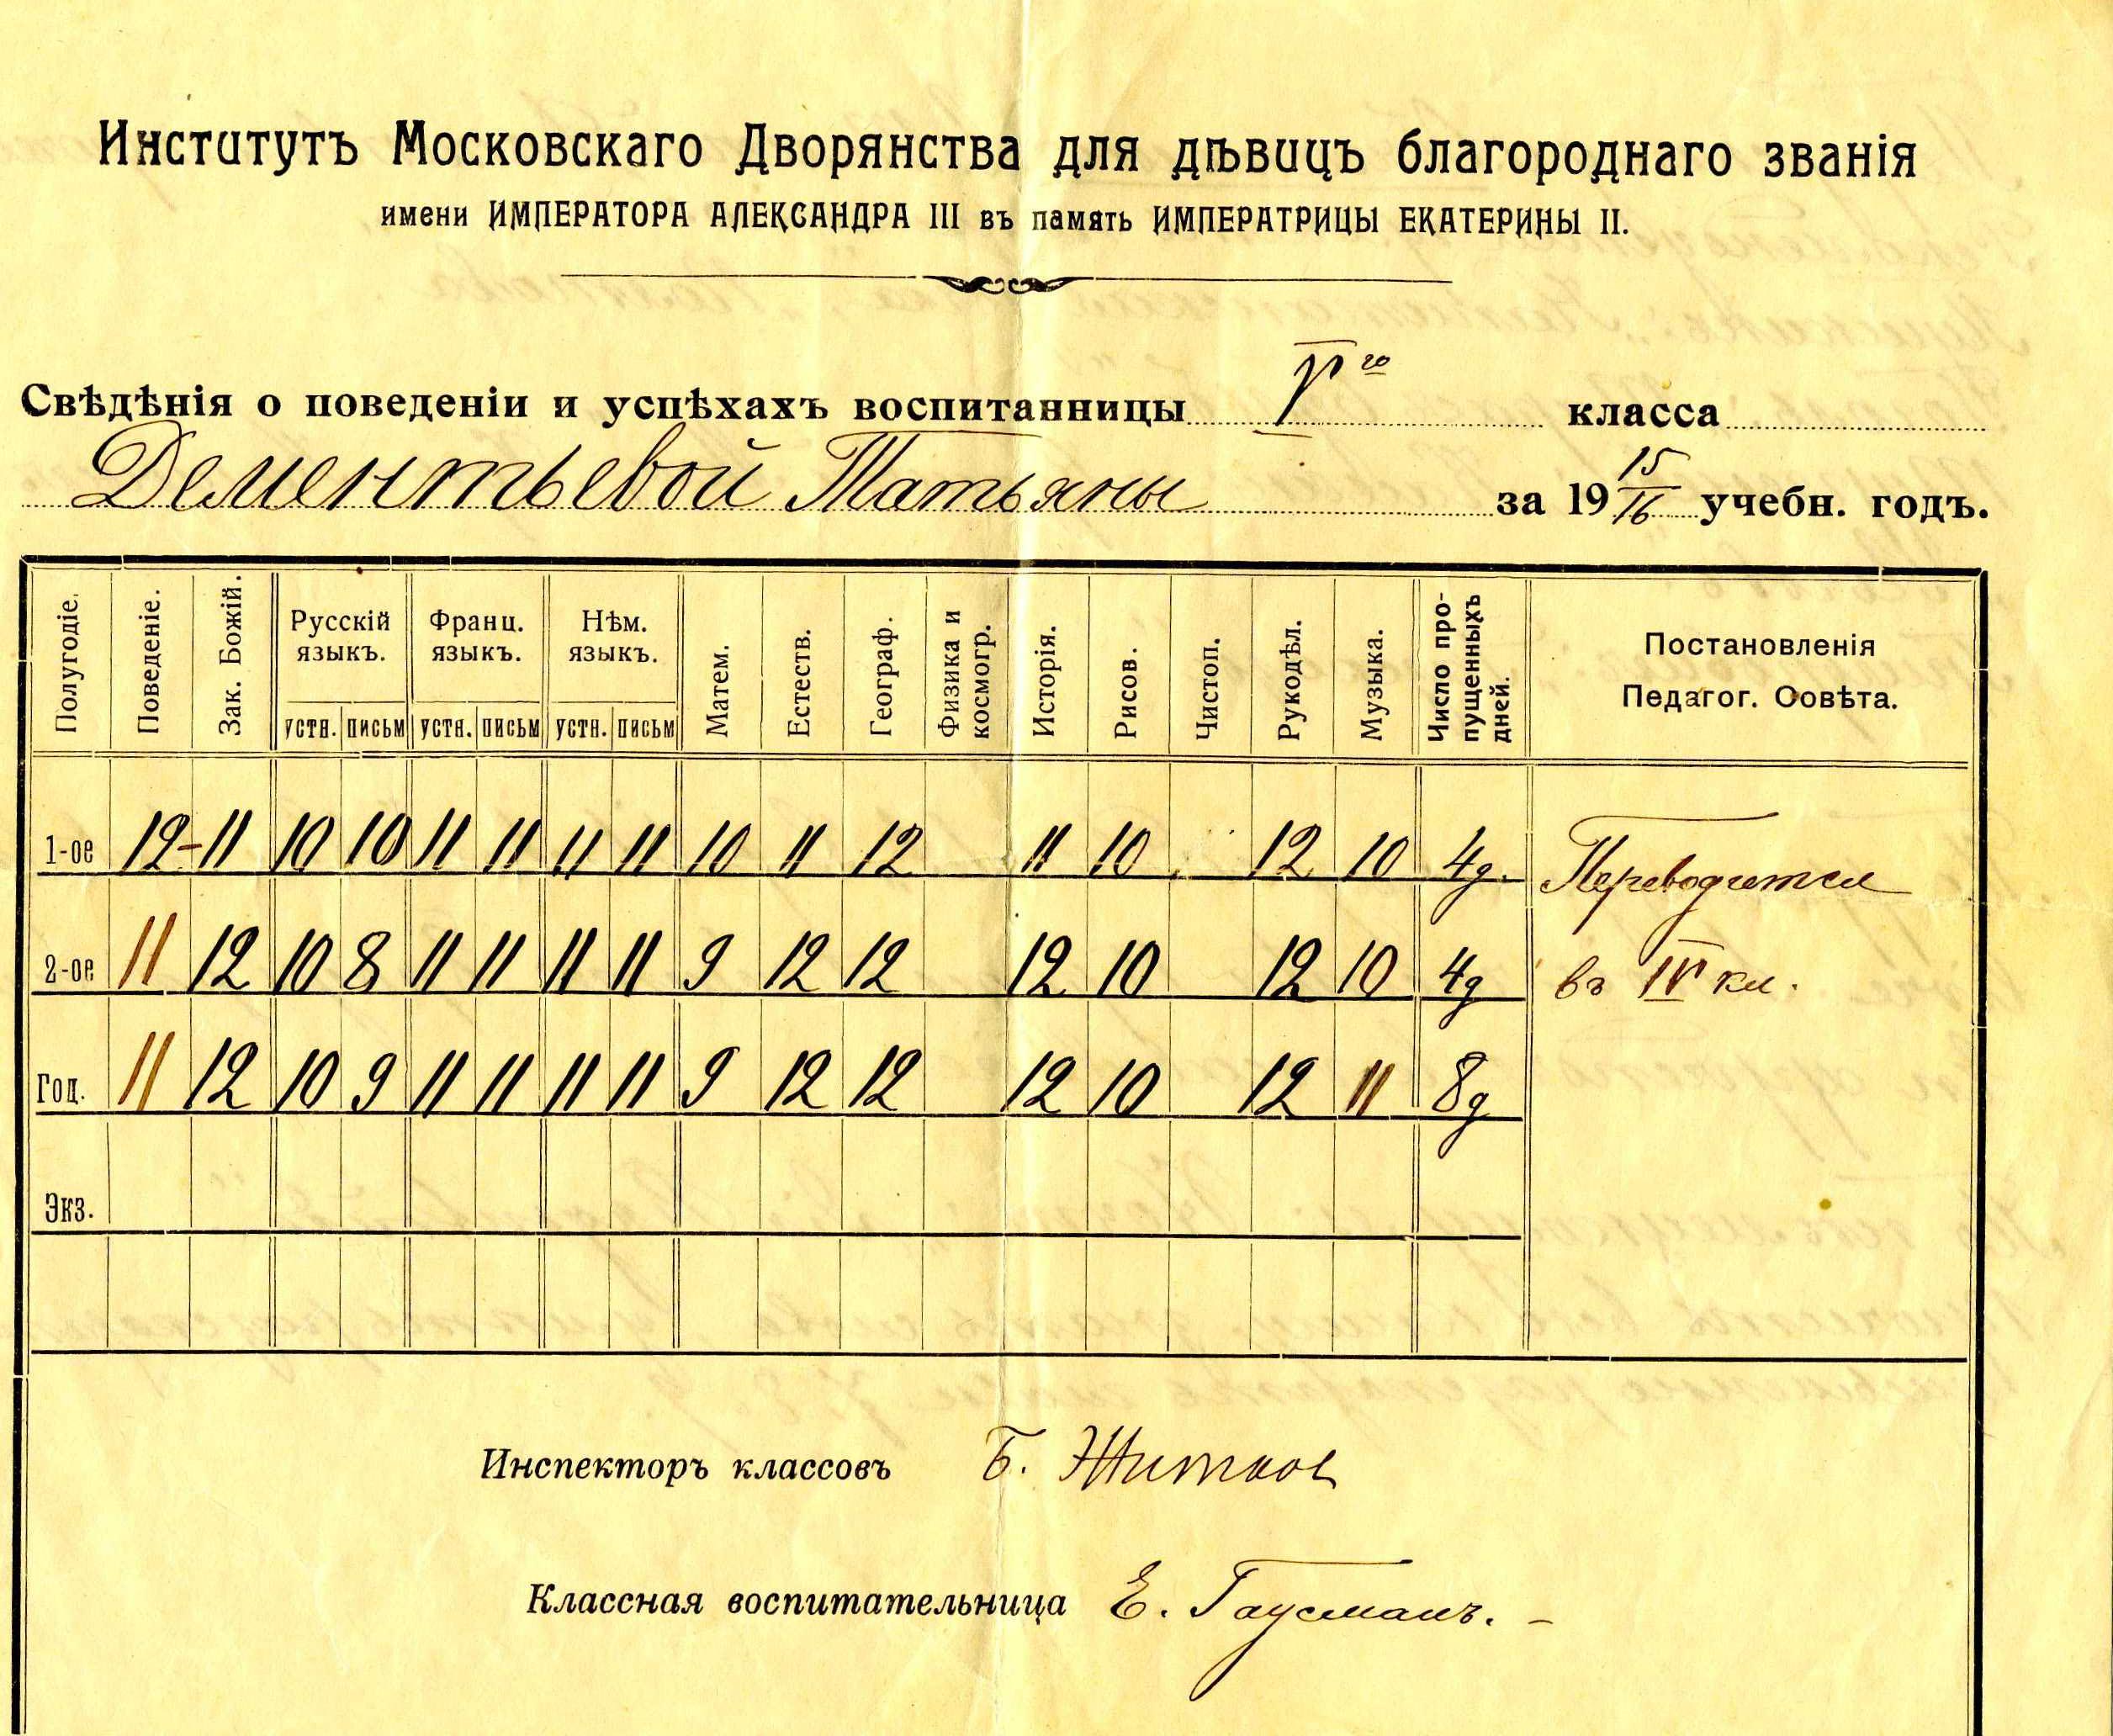 Институтъ Московскаго Дворянства для дѣвицъ благороднаго званія
имени ИМПЕРАТОРА АЛЕКСАНДРА III въ память ИМПЕРАТРИЦЫ ЕКАТЕРИНЫ II.
Свѣдѣнія о поведеніи и успѣхахъ воспитанницы V го класса
Дементьевой Татьяны за 19 15/16 учебн. годъ.
Полугодіе. Поведеніе. Зак. Божій. Русскій языкъ. устн. письм Франц. языкъ. устн. письм Нѣм. языкъ. устн. письм Матем. Естеств. Географ. Физика и космогр. Исторія. Рисов. Чистоп. Рукодѣл. Музыка. Число пропущенныхъ дней. Постановленія Педагог. Совѣта.
1-ое 12- 11 10 10 11 11 11 11 10 11 12 11 10 12 10 4д. Переводится
2-ое 11 12 10 8 11 11 11 11 9 12 12 12 10 12 10 4д въ IV кл.
Год. 11 12 10 9 11 11 11 11 9 12 12 12 10 12 11 8д
Экз.
Инспекторъ классовъ Б. Житков
Классная воспитательница Е. Гаусманъ. -